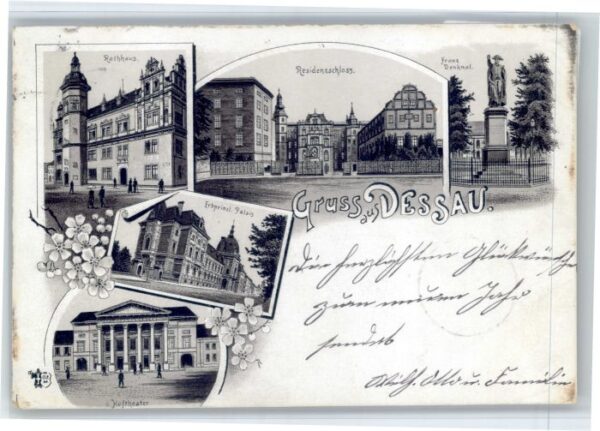 Rathhaus.
Residensschloss.
Franz
Denkmal.
Erbprinzl. Palais
Gruss aus DESSAU.
Hoftheater
Die herzlichsten Glückwünsche
zum neuen Jahr
sendet
Wilh. Otto u. Familie